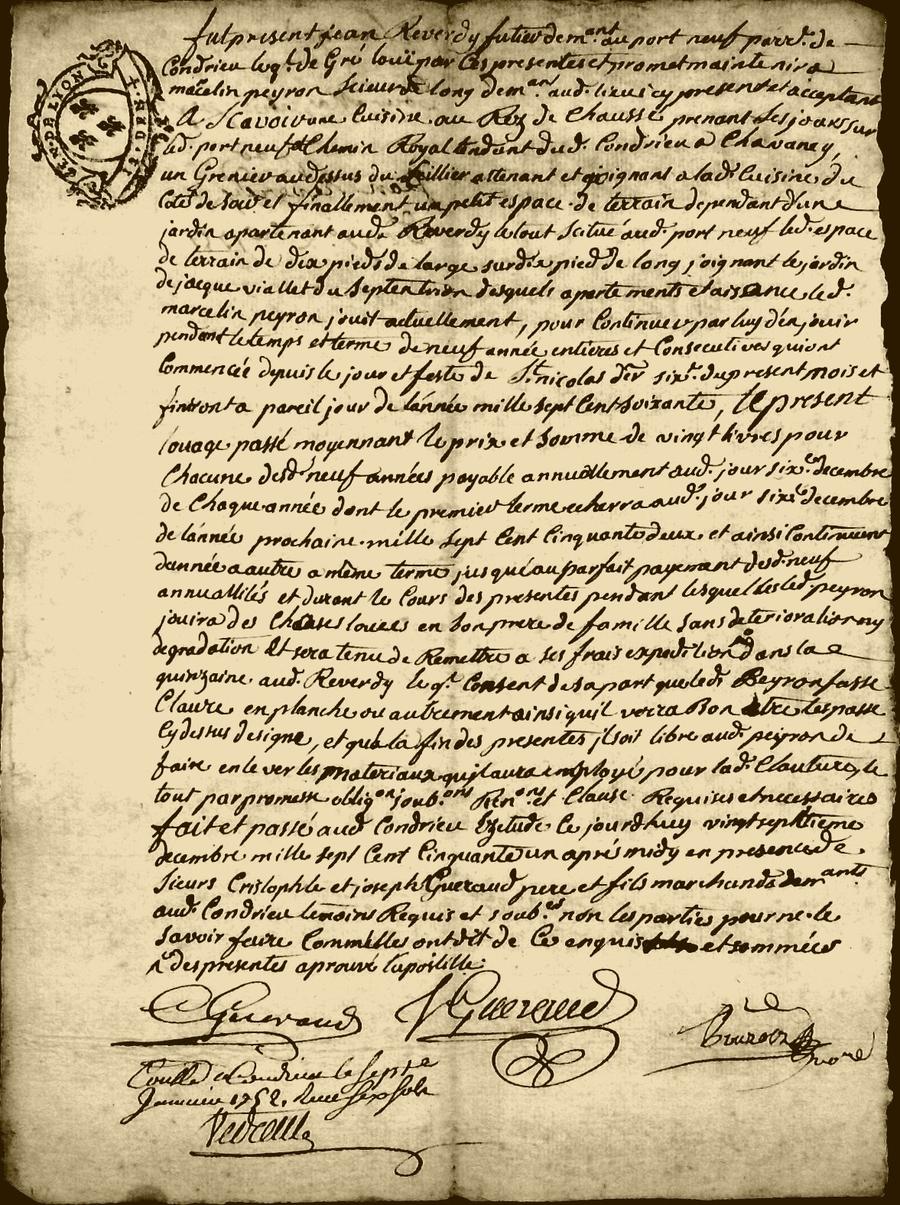 fut present jean Reverdy futier dem.ant au port neuf parr.e de
Condrieu leq.l de Gré loüe par Ces presentes et promet maintenir a
marcelin peyron Scieur de long dem.ant aud. lieu icy present et acceptant
A Scavoir une Cuisine au Rez de Chaussé prenant ses jours sur
led. port neuf et Chemin Royal tendant dud. Condrieu a Chavanay,
un Grenier audessus du Seillier attenant et joignant a lad. Cuisine du
coté de soir et finallement un petit espace de terrain dependant d'une
jardin apartenant aud. Reverdy le tout Scitué aud. port neuf led. espace
de terrain de dix pieds de large sur dix pied de long joignant le jardin
de jacque viallet du Septentrion desquels apartements et aisance led.
marcelin peyron jouit actuellement, pour Continuer par luy d'en jouir
pendant le temps et terme de neuf année entieres et Consecutives qui ont
Commencée depuis le jour et feste de St. nicolas d.er six.e du present mois et
finiront a pareil jour de l'année mille sept Cent soixante, le present
louage passé moyennant le prix et somme de vingt livres pour
Chacune desd. neuf années payable annuellement aud. jour six.e decembre
de Chaque année dont le premier terme echerra aud. jour six.e decembre
de l'année prochaine mille sept Cent Cinquante deux et ainsi Continuer
d'année a autre a même terme jusqu'au parfait payement desd. neuf
annuallités et durant le Cours des presentes pendant lesquelles led. peyron
jouira des Choses louées en bon pere de famille sans deterioration ny
degradation Et sera tenu de Remettre a ses frais expedition dans la
quinzaine aud. Reverdy le q.l Consent de sa part que led. Peyron fasse
Claure en planche ou autrement ainsi quil verra Bon etre l'espasse
Cy dessus designe, et qu'a la fin des presentes il soit libre aud. peyron de
faire enlever les materiaux qu'il aura employé pour lad. Clauture, le
tout par promesse oblig.on soub.ons Ren.ons et Clause Requises et necessaires
fait et passé aud. Condrieu Etude Ce jourdhuy vingt septieme
decembre mille sept Cent Cinquante un aprés midy en presence de
Sieurs Cristophle et joseph Gueraud pere et fils marchands dem.ants
aud. Condrieu temoins Requis et soub.es non les parties pour ne le
savoir faire Commelles ont dit de Ce enquis et sommées
des presentes aprouvé l'apostille
C Gueraud
J Gueraud
Condrieu le sept.e
Janvier 1752.
GEN. DE LYON